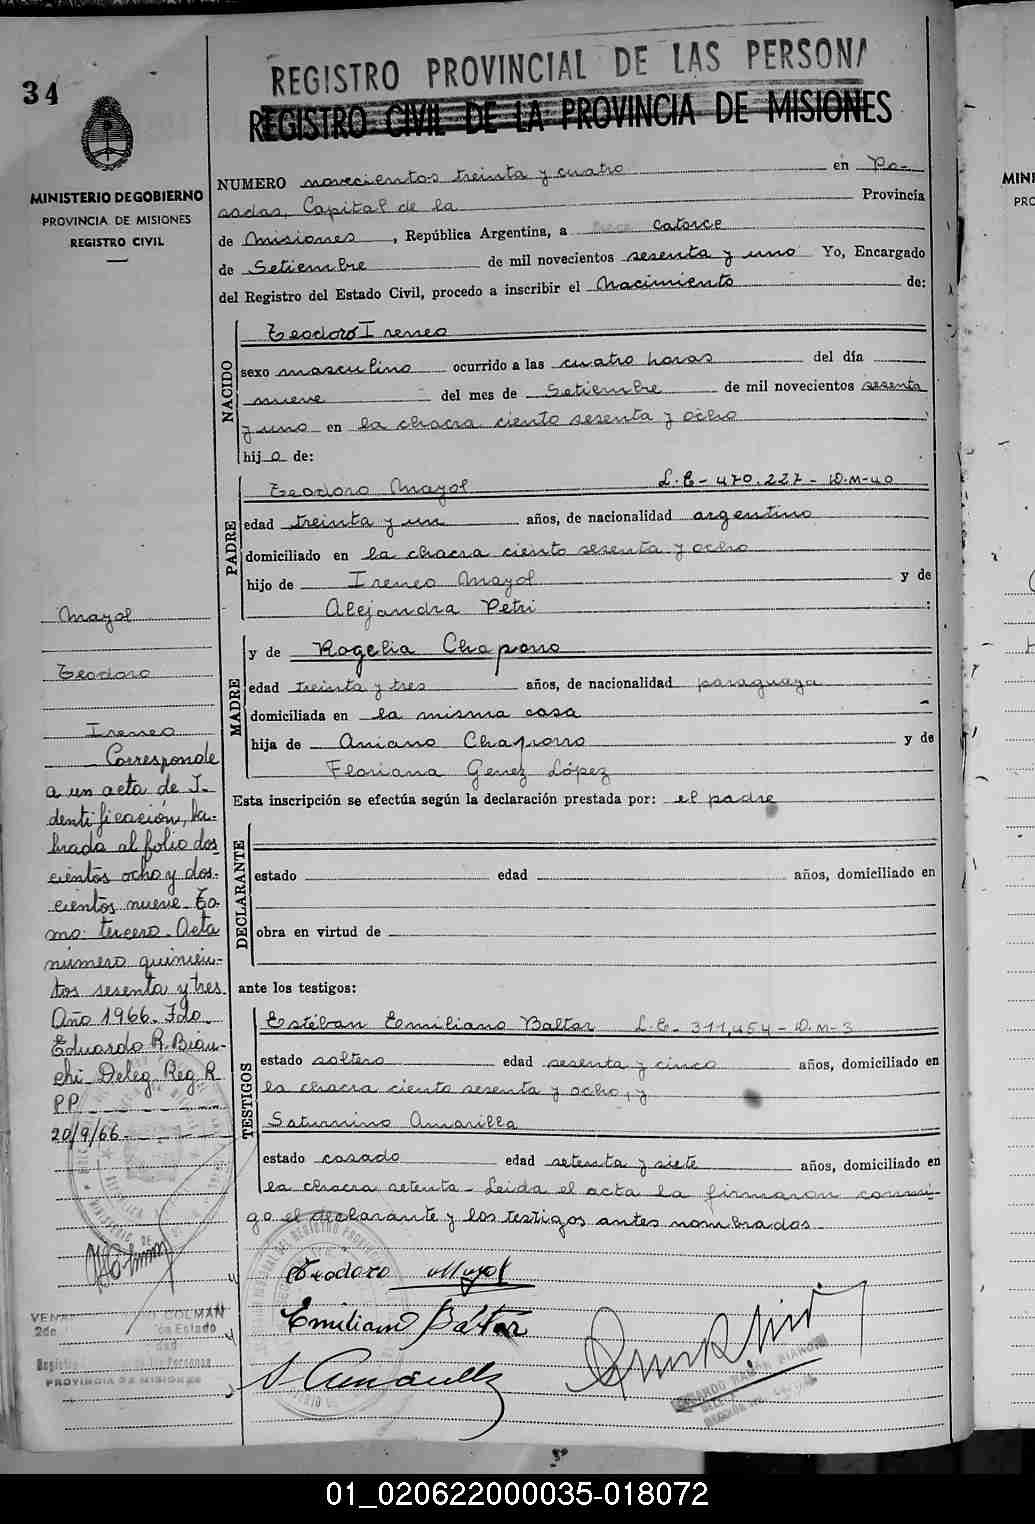 34
REGISTRO PROVINCIAL DE LAS PERSONA
REGISTRO CIVIL DE LA PROVINCIA DE MISIONES
MINISTERIO DE GOBIERNO
PROVINCIA DE MISIONES
REGISTRO CIVIL
NUMERO novecientos treinta y cuatro en Po-
sadas, Capital de la Provincia
de Misiones, República Argentina, a catorce
de Setiembre de mil novecientos sesenta y uno Yo, Encargado
del Registro del Estado Civil, procedo a inscribir el Nacimiento de:
NACIDO
Teodoro Ireneo
sexo masculino ocurrido a las cuatro horas del día
nueve del mes de Setiembre de mil novecientos sesenta
y uno en la chacra ciento sesenta y ocho
hijo de:
PADRE
Teodoro Mayol L.E- 470.227- D.M-40
edad treinta y un años, de nacionalidad argentino
domiciliado en la chacra ciento sesenta y ocho
hijo de Ireneo Mayol y de
Alejandra Petri :
MADRE
y de Rogelia Chaparro
edad treinta y tres años, de nacionalidad paraguaya
domiciliada en la misma casa
hija de Aniano Chaparro y de
Floriana Genez López
Esta inscripción se efectúa según la declaración prestada por: el padre
DECLARANTE
estado edad años, domiciliado en
obra en virtud de
ante los testigos:
TESTIGOS
Estéban Emiliano Baltar L.E- 311,454- D.M-3
estado soltero edad sesenta y cinco años, domiciliado en
la chacra ciento sesenta y ocho, y
Saturnino Amarilla
estado casado edad setenta y siete años, domiciliado en
la chacra setenta- Leida el acta la firmaron conmi-
go el declarante y los testigos antes nombrados-
Teodoro Mayol
Emiliano Báltar
S. Amarilla
Mayol
Teodoro
Ireneo
Corresponde
a un acta de I-
dentificación, la-
brada al folio dos
cientos ocho y dos-
cientos nueve. To-
mo tercero. Acta
número quinien-
tos sesenta y tres
Año 1966. Fdo.
Eduardo R. Bian-
chi Deleg. Reg. R
PP
20/9/66
COLMAN
Estado
PROVINCIA DE MISIONES
MINI
PRO
01_020622000035-018072